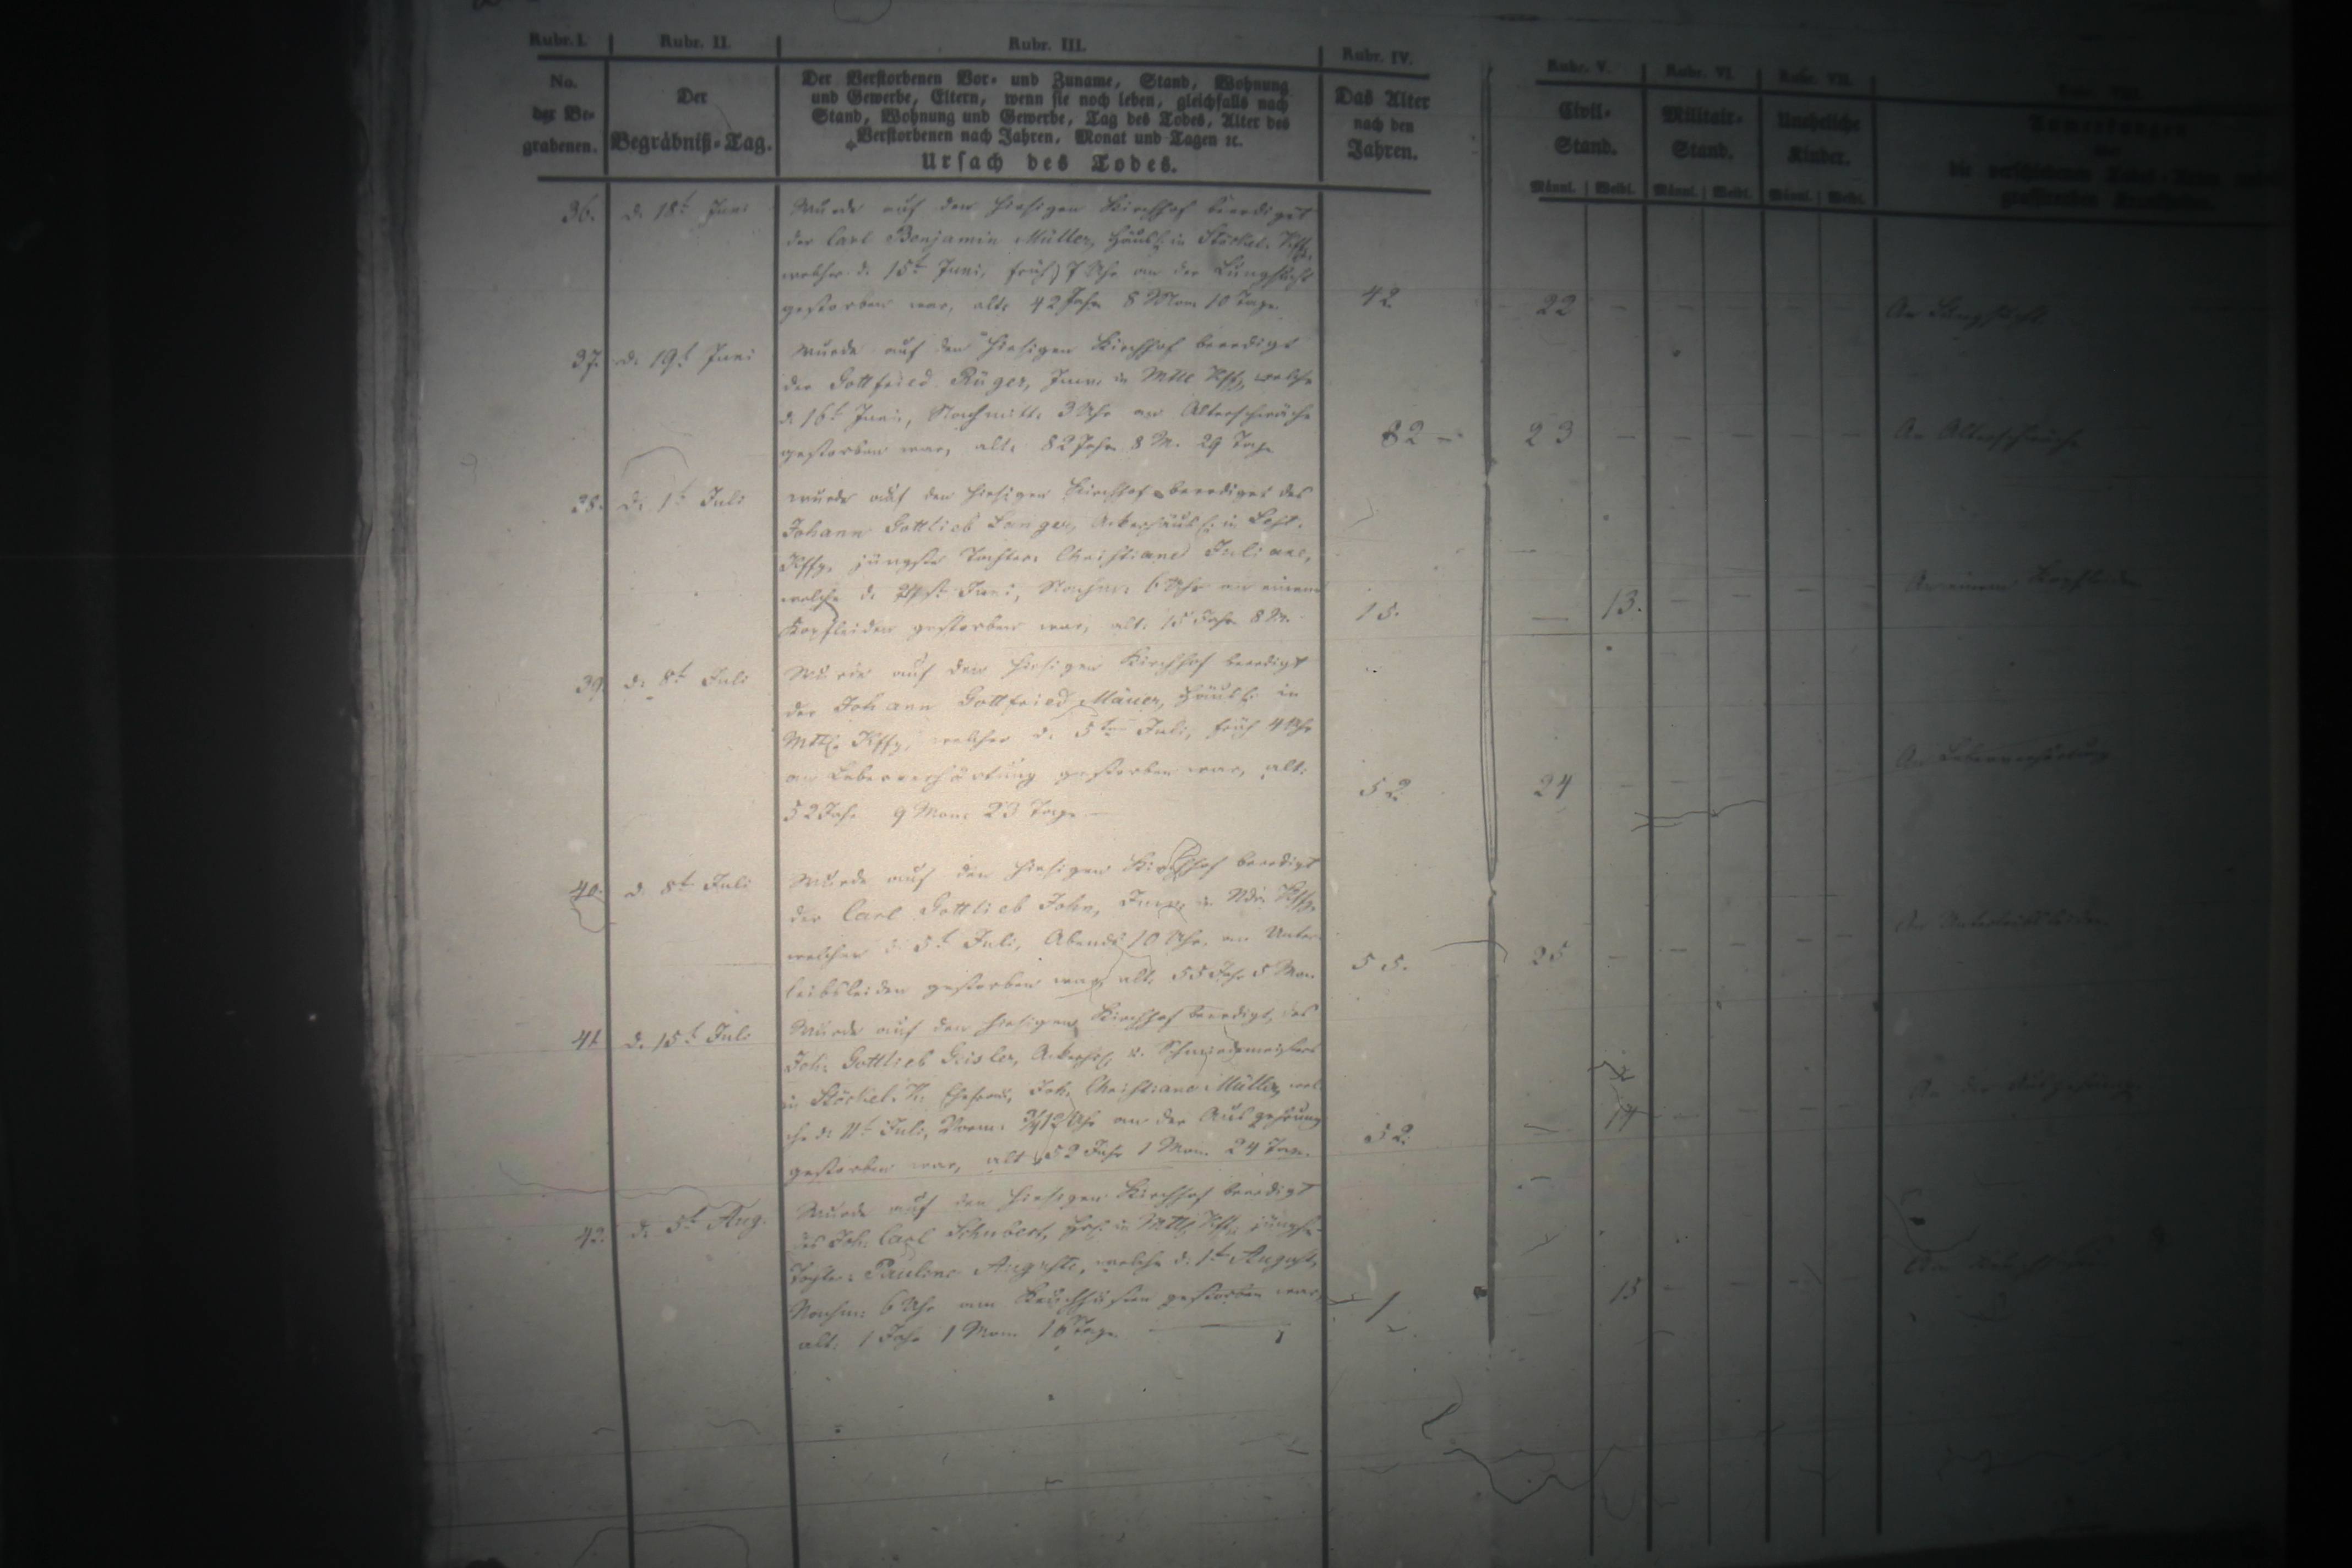 Rubr. I. Rubr. II. Rubr. III. Rubr. IV. Rubr. V. Rubr. VI. Rubr. VII.
No. der Be- grabenen.
Der Begräbniß-Tag.
Der Verstorbenen Vor- und Zuname, Stand, Wohnung
und Gewerbe, Eltern, wenn sie noch leben, gleichfalls nach
Stand, Wohnung und Gewerbe, Tag des Todes, Alter des
Verstorbenen nach Jahren, Monat und Tagen ꝛc.
Ursach des Todes.
Das Alter nach den Jahren.
Civil- Stand.
Militair- Stand.
Uneheliche Kinder.
Männl. Weibl. Männl. Weibl. Männl. Weibl.
36. d. 18t Juni Wurde auf den hiesigen Kirchhof beerdiget
der Carl Benjamin Müller, Häusl. in Stöckel. Kffg.
welcher d. 15t Juni, früh 7 Uhr an der Lungsucht
gestorben war, alt. 42 Jahr 8 Mon. 10 Tage 42 22 — — — — —
37. d. 19t Juni Wurde auf den hiesigen Kirchhof beerdigt
der Gottfried Rüger, Inw. in Mttl Kffg, welcher
d. 16t Juni, Nachmitt. 3 Uhr an Altersschwäche
gestorben war, alt. 82 Jahr 8 M. 29 Tage 82 — 23 — — — — — An Altersschwäche
38. d. 1t Juli wurde auf den hiesigen Kirchhof beerdiget des
Johann Gottlieb Langer, Ackerhäusl. in
Kffg. jüngste Tochter. Christiane Juliane,
welche d. Juni, Nachm. 6 Uhr an einem
Kopfleiden gestorben war, alt. 15 Jahr 8 M. 15. — 13. — — — — An einem Kopfleiden
39. d. 8t Juli Wurde auf den hiesigen Kirchhof beerdigt
der Johann Gottfried Mäuer, Häusl. in
Mttl. Kffg, welcher d. 5ten Juli, früh 4 Uhr
an Leberverhärtung gestorben war, alt.
52 Jahr 9 Mon. 23 Tage — 52 24 — — — — — An Leberverhärtung
40. d. 8t Juli Wurde auf den hiesigen Kirchhof beerdigt
der Carl Gottlieb John, Inw. in Ndr. Kffg.
welcher d. 5t Juli, Abends 10 Uhr, an Unter-
leibsleiden gestorben war, alt. 55 Jahr 5 Mon. 55. 25 — — — — — An Unterleibsleiden
41 d. 15t Juli Wurde auf den hiesigen Kirchhof beerdigt, des
Joh. Gottlieb Geisler, u. Schmiedemeisters
in Stöckel. K. Ehefrau, Joh. Christiane Müller, wel-
che d. 11t Juli, Vorm. Uhr an der Auszehrung
gestorben war, alt 52 Jahr 1 Mon. 24 Tage. 52. — 14 — — — —
42. d. 5t Aug. Wurde auf den hiesigen Kirchhof beerdigt
des Joh. Carl Schubert, in Mttl. Kffg. jüngste
Tochter. Pauline Auguste, welche d. 1t August,
Nachm. 6 Uhr am Keuchhusten gestorben war,
alt. 1 Jahr 1 Mon. 16 Tage — 1 — 15 — — — —